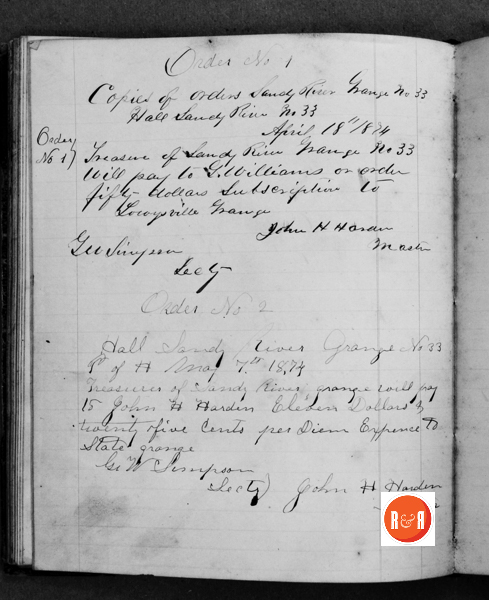 Order No 1
Copies of orders Sandy River Grange No 33
Hall Sandy River No 33
April 18th 1874
Order No 1) Treasure of Sandy River Grange No 33
Will pay to G. Williams or order
fifty dollars Subscription to
Lowrysville Grange
John H Harden
Master
G W Simpson
Secty
Order No 2
Hall Sandy River Grange No 33
P of H May 7th 1874
Treasurer of Sandy River grange will pay
to John H Harden Eleven Dollars &
twenty five Cents per Diem Expense to
State grange
G W Simpson
Secty) John H Harden
R&R